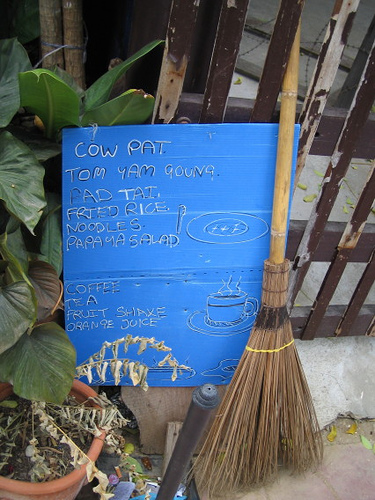 COW PAT.
TOM YAM GOUNG.
PAD TAI.
FRIED RICE
NOODLES.
PAPAYA SALAD
COFFEE
TEA
FRUIT SHAKE
ORANGE JUICE